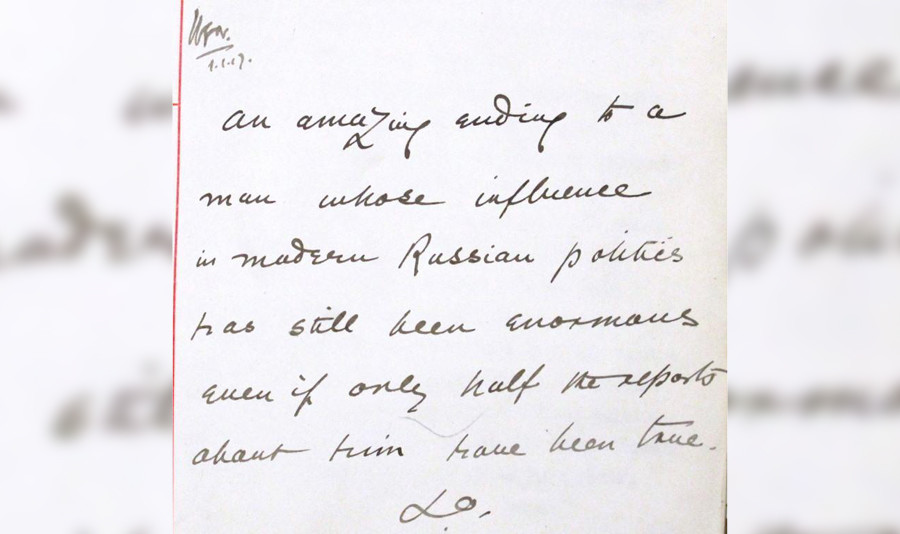 1.1.17.
An amazing ending to a
man whose influence
in modern Russian politics
has still been enormous
even if only half the reports
about him have been true.
L.O.